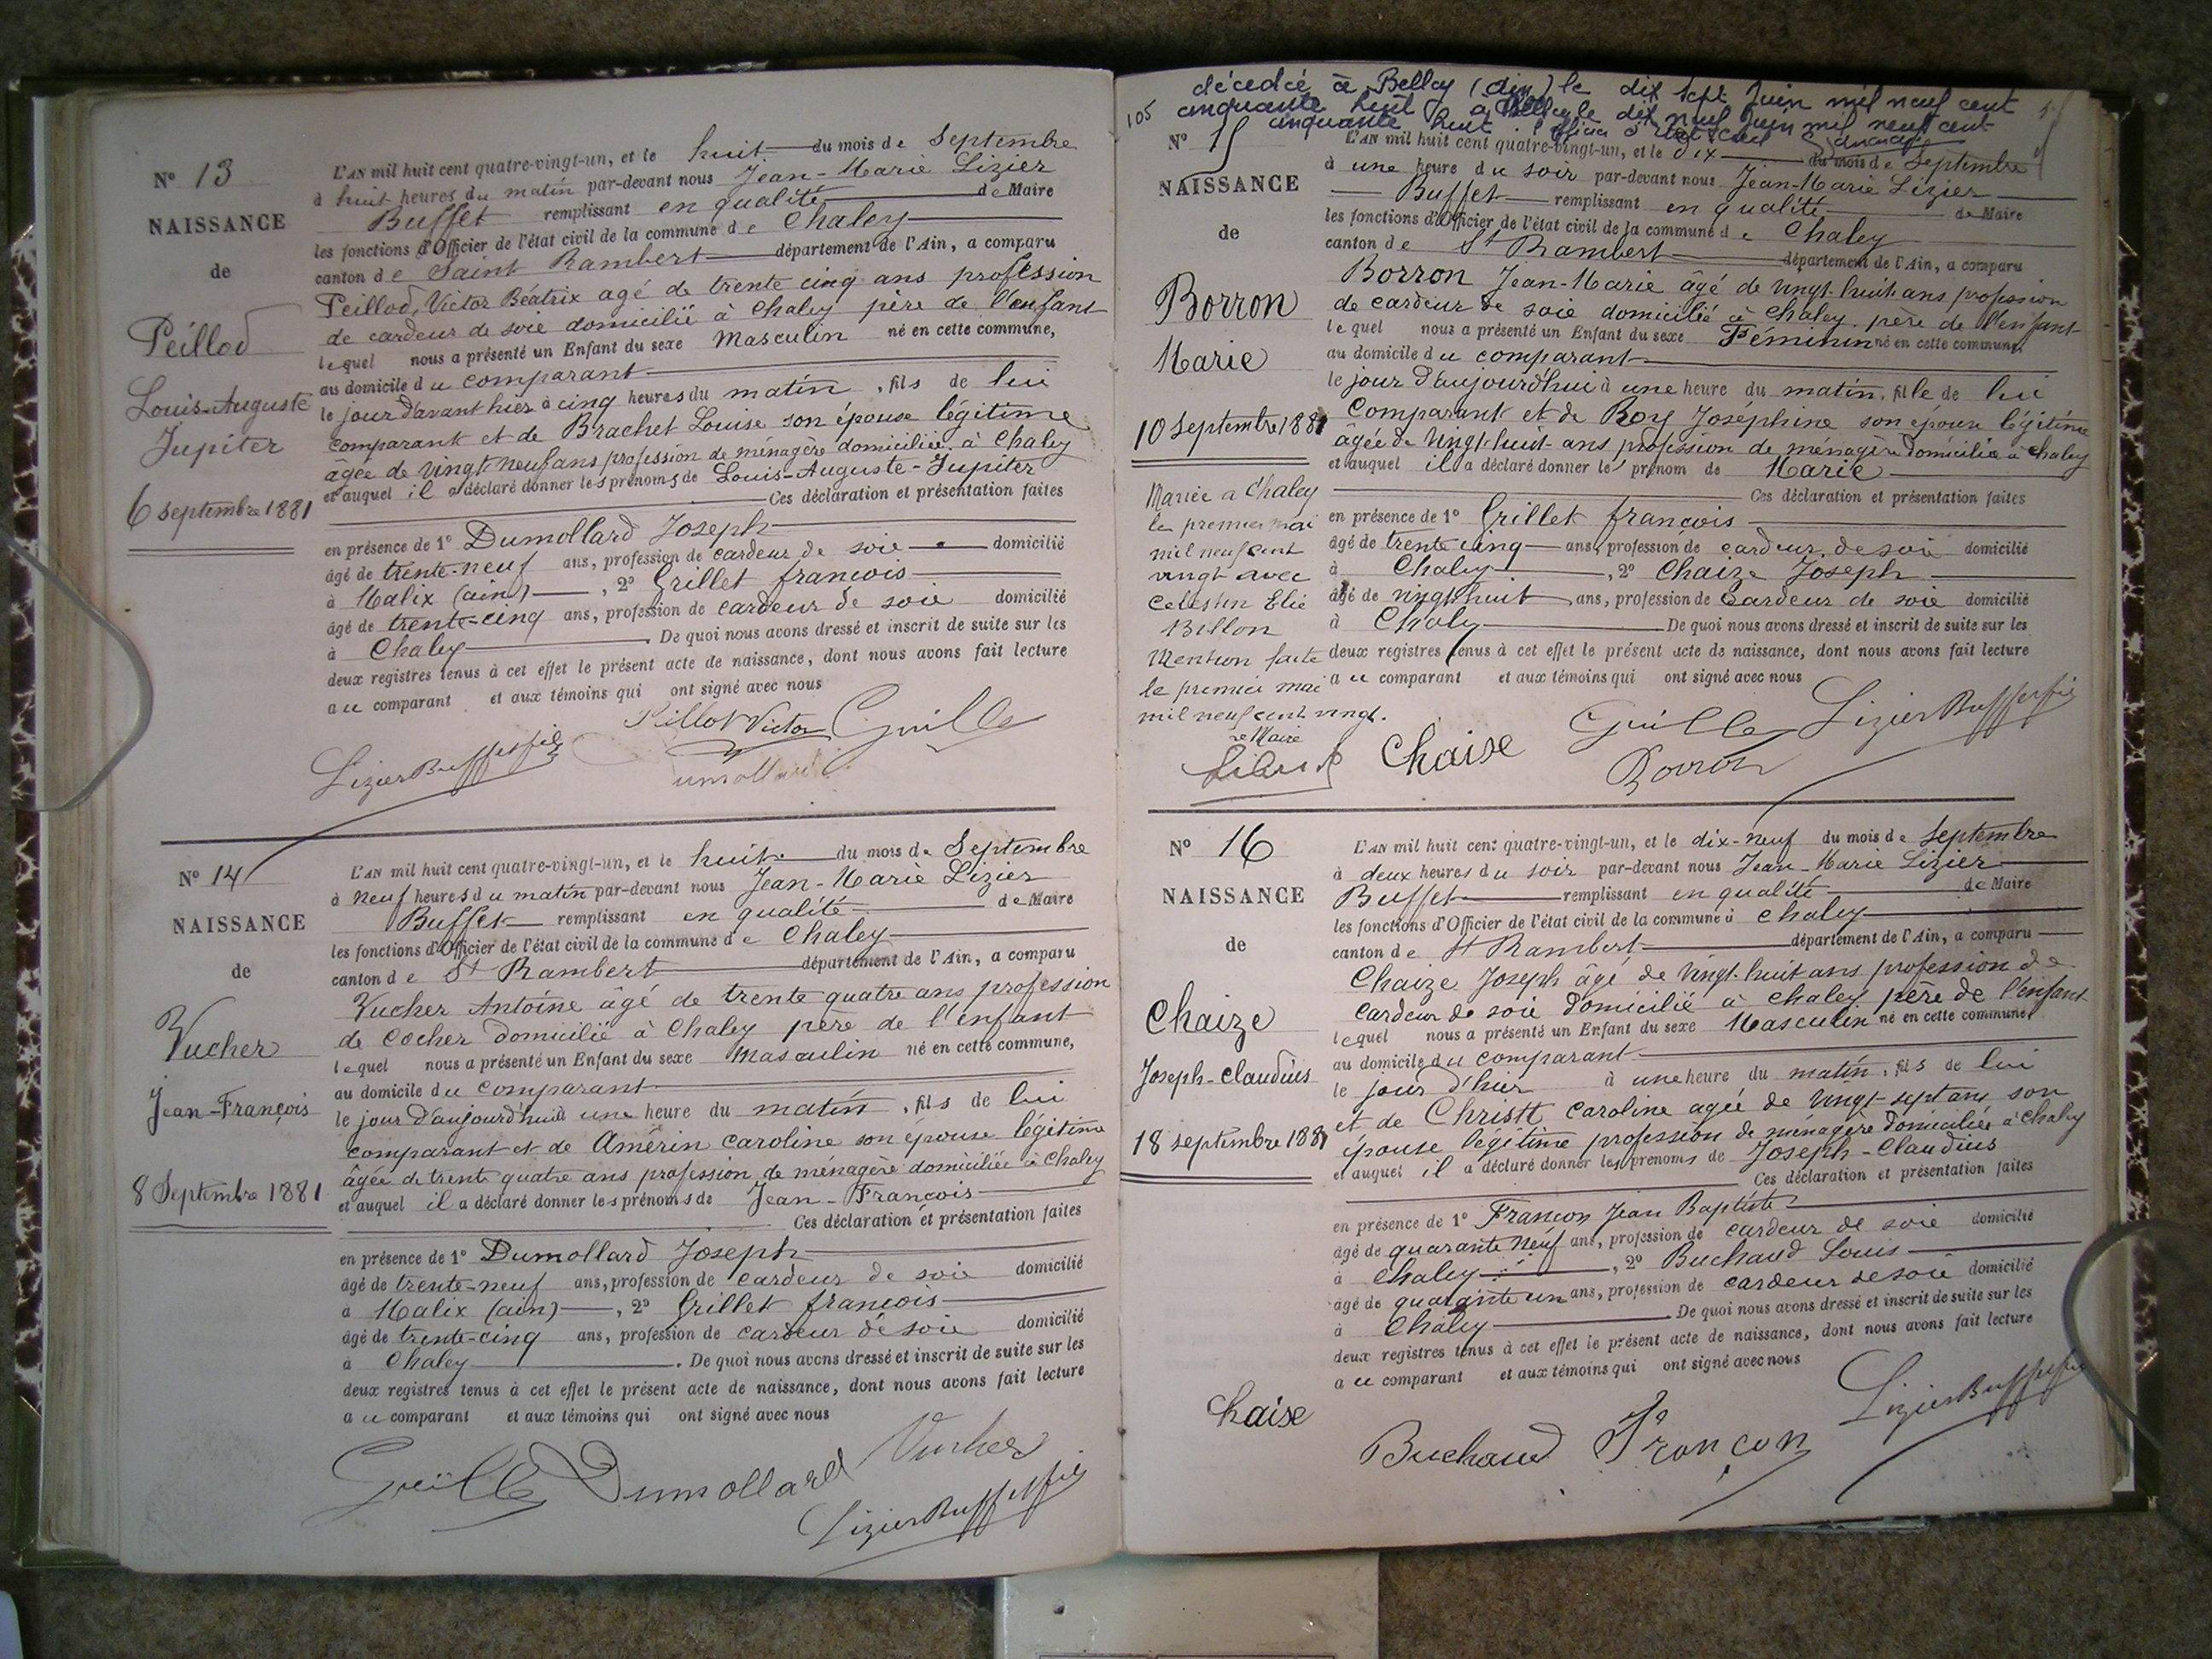 N° 13
NAISSANCE
de
Peillod
Louis-Auguste
Jupiter
6 septembre 1881
L'AN mil huit cent quatre-vingt-un, et le huit du mois de Septembre
à huit heures du matin par-devant nous Jean-Marie Lizier
Buffet remplissant en qualité de Maire
les fonctions d'Officier de l'état civil de la commune de Chaley
canton de Saint Rambert département de l'Ain, a comparu
Peillod, Victor Béatrix agé de trente cinq ans profession
de cardeur de soie domicilié à Chaley père de l'enfant
lequel nous a présenté un Enfant du sexe Masculin né en cette commune,
au domicile du comparant
le jour d'avant hier à cinq heures du matin, fils de lui
comparant et de Brachet Louise son épouse légitime
âgée de vingt neuf ans profession de ménagère domiciliée à Chaley
et auquel il a déclaré donner les prénoms de Louis-Auguste-Jupiter
Ces déclaration et présentation faites
en présence de 1° Dumollard Joseph
âgé de trente-neuf ans, profession de cardeur de soie domicilié
à Malix (ain), 2° Grillet françois
âgé de trente-cinq ans, profession de cardeur de soie domicilié
à Chaley. De quoi nous avons dressé et inscrit de suite sur les
deux registres tenus à cet effet le présent acte de naissance, dont nous avons fait lecture
au comparant et aux témoins qui ont signé avec nous
Pillot Victor
Lizier Buffet fils
N° 14
NAISSANCE
de
Vucher
Jean-François
8 Septembre 1881
L'AN mil huit cent quatre-vingt-un, et le huit du mois de Septembre
à neuf heures du matin par-devant nous Jean-Marie Lizier
Buffet remplissant en qualité de Maire
les fonctions d'Officier de l'état civil de la commune de Chaley
canton de St Rambert département de l'Ain, a comparu
Vucher Antoine âgé de trente quatre ans profession
de cocher domicilié à Chaley père de l'enfant
lequel nous a présenté un Enfant du sexe Masculin né en cette commune,
au domicile du comparant
le jour d'aujourd'hui à une heure du matin, fils de lui
comparant et de Amérin Caroline son épouse légitime
âgée de trente quatre ans profession de ménagère domiciliée à Chaley
et auquel il a déclaré donner les prénoms de Jean-François
Ces déclaration et présentation faites
en présence de 1° Dumollard Joseph
âgé de trente-neuf ans, profession de cardeur de soie domicilié
à Malix (ain), 2° Grillet françois
âgé de trente-cinq ans, profession de cardeur de soie domicilié
à Chaley. De quoi nous avons dressé et inscrit de suite sur les
deux registres tenus à cet effet le présent acte de naissance, dont nous avons fait lecture
au comparant et aux témoins qui ont signé avec nous
Dumollard Vucher
Lizier Buffet fils
décédée à Belley (ain) le dix sept juin mil neuf cent
cinquante huit à Belley le dix neuf juin mil neuf cent
cinquante huit. l'officier d'état civil
105
N° 15
NAISSANCE
de
Borron
Marie
10 septembre 1881
Mariée à Chaley
le premier mai
mil neuf cent
vingt avec
Celestin Elie
Billon
Mention faite
le premier mai
mil neuf cent vingt.
Le Maire
L'AN mil huit cent quatre-vingt-un, et le dix du mois de Septembre
à une heure du soir par-devant nous Jean-Marie Lizier
Buffet remplissant en qualité de Maire
les fonctions d'Officier de l'état civil de la commune de Chaley
canton de St Rambert département de l'Ain, a comparu
Borron Jean-Marie âgé de vingt-huit ans profession
de cardeur de soie domicilié à Chaley père de l'enfant
lequel nous a présenté un Enfant du sexe Féminin né en cette commune,
au domicile du comparant
le jour d'aujourd'hui à une heure du matin, fille de lui
comparant et de Roy Joséphine son épouse légitime
âgée de vingt-huit ans profession de ménagère domiciliée à Chaley
et auquel il a déclaré donner le prénom de Marie
Ces déclaration et présentation faites
en présence de 1° Grillet françois
âgé de trente cinq ans, profession de cardeur de soie domicilié
à Chaley, 2° Chaize Joseph
âgé de vingt huit ans, profession de cardeur de soie domicilié
à Chaley De quoi nous avons dressé et inscrit de suite sur les
deux registres tenus à cet effet le présent acte de naissance, dont nous avons fait lecture
au comparant et aux témoins qui ont signé avec nous
Chaise Lizier Buffet fils
Borron
N° 16
NAISSANCE
de
Chaize
Joseph-Claudius
18 septembre 1881
L'AN mil huit cent quatre-vingt-un, et le dix-neuf du mois de septembre
à deux heures du soir par-devant nous Jean-Marie Lizier
Buffet remplissant en qualité de Maire
les fonctions d'Officier de l'état civil de la commune à Chaley
canton de St Rambert département de l'Ain, a comparu
Chaize Joseph âgé de vingt-huit ans profession de
cardeur de soie domicilié à Chaley père de l'enfant
lequel nous a présenté un Enfant du sexe Masculin né en cette commune,
au domicile du comparant
le jour d'hier à une heure du matin, fils de lui
et de Christt Caroline agée de vingt-sept ans son
épouse légitime profession de ménagère domiciliée à Chaley
et auquel il a déclaré donner les prénoms de Joseph-Claudius
Ces déclaration et présentation faites
en présence de 1° Françon Jean Baptiste
âgé de quarante neuf ans, profession de cardeur de soie domicilié
à Chaley, 2° Buchaud Louis
âgé de quarante un ans, profession de cardeur de soie domicilié
à Chaley De quoi nous avons dressé et inscrit de suite sur les
deux registres tenus à cet effet le présent acte de naissance, dont nous avons fait lecture
au comparant et aux témoins qui ont signé avec nous
Chaise Buchaud Françon Lizier Buffet fils